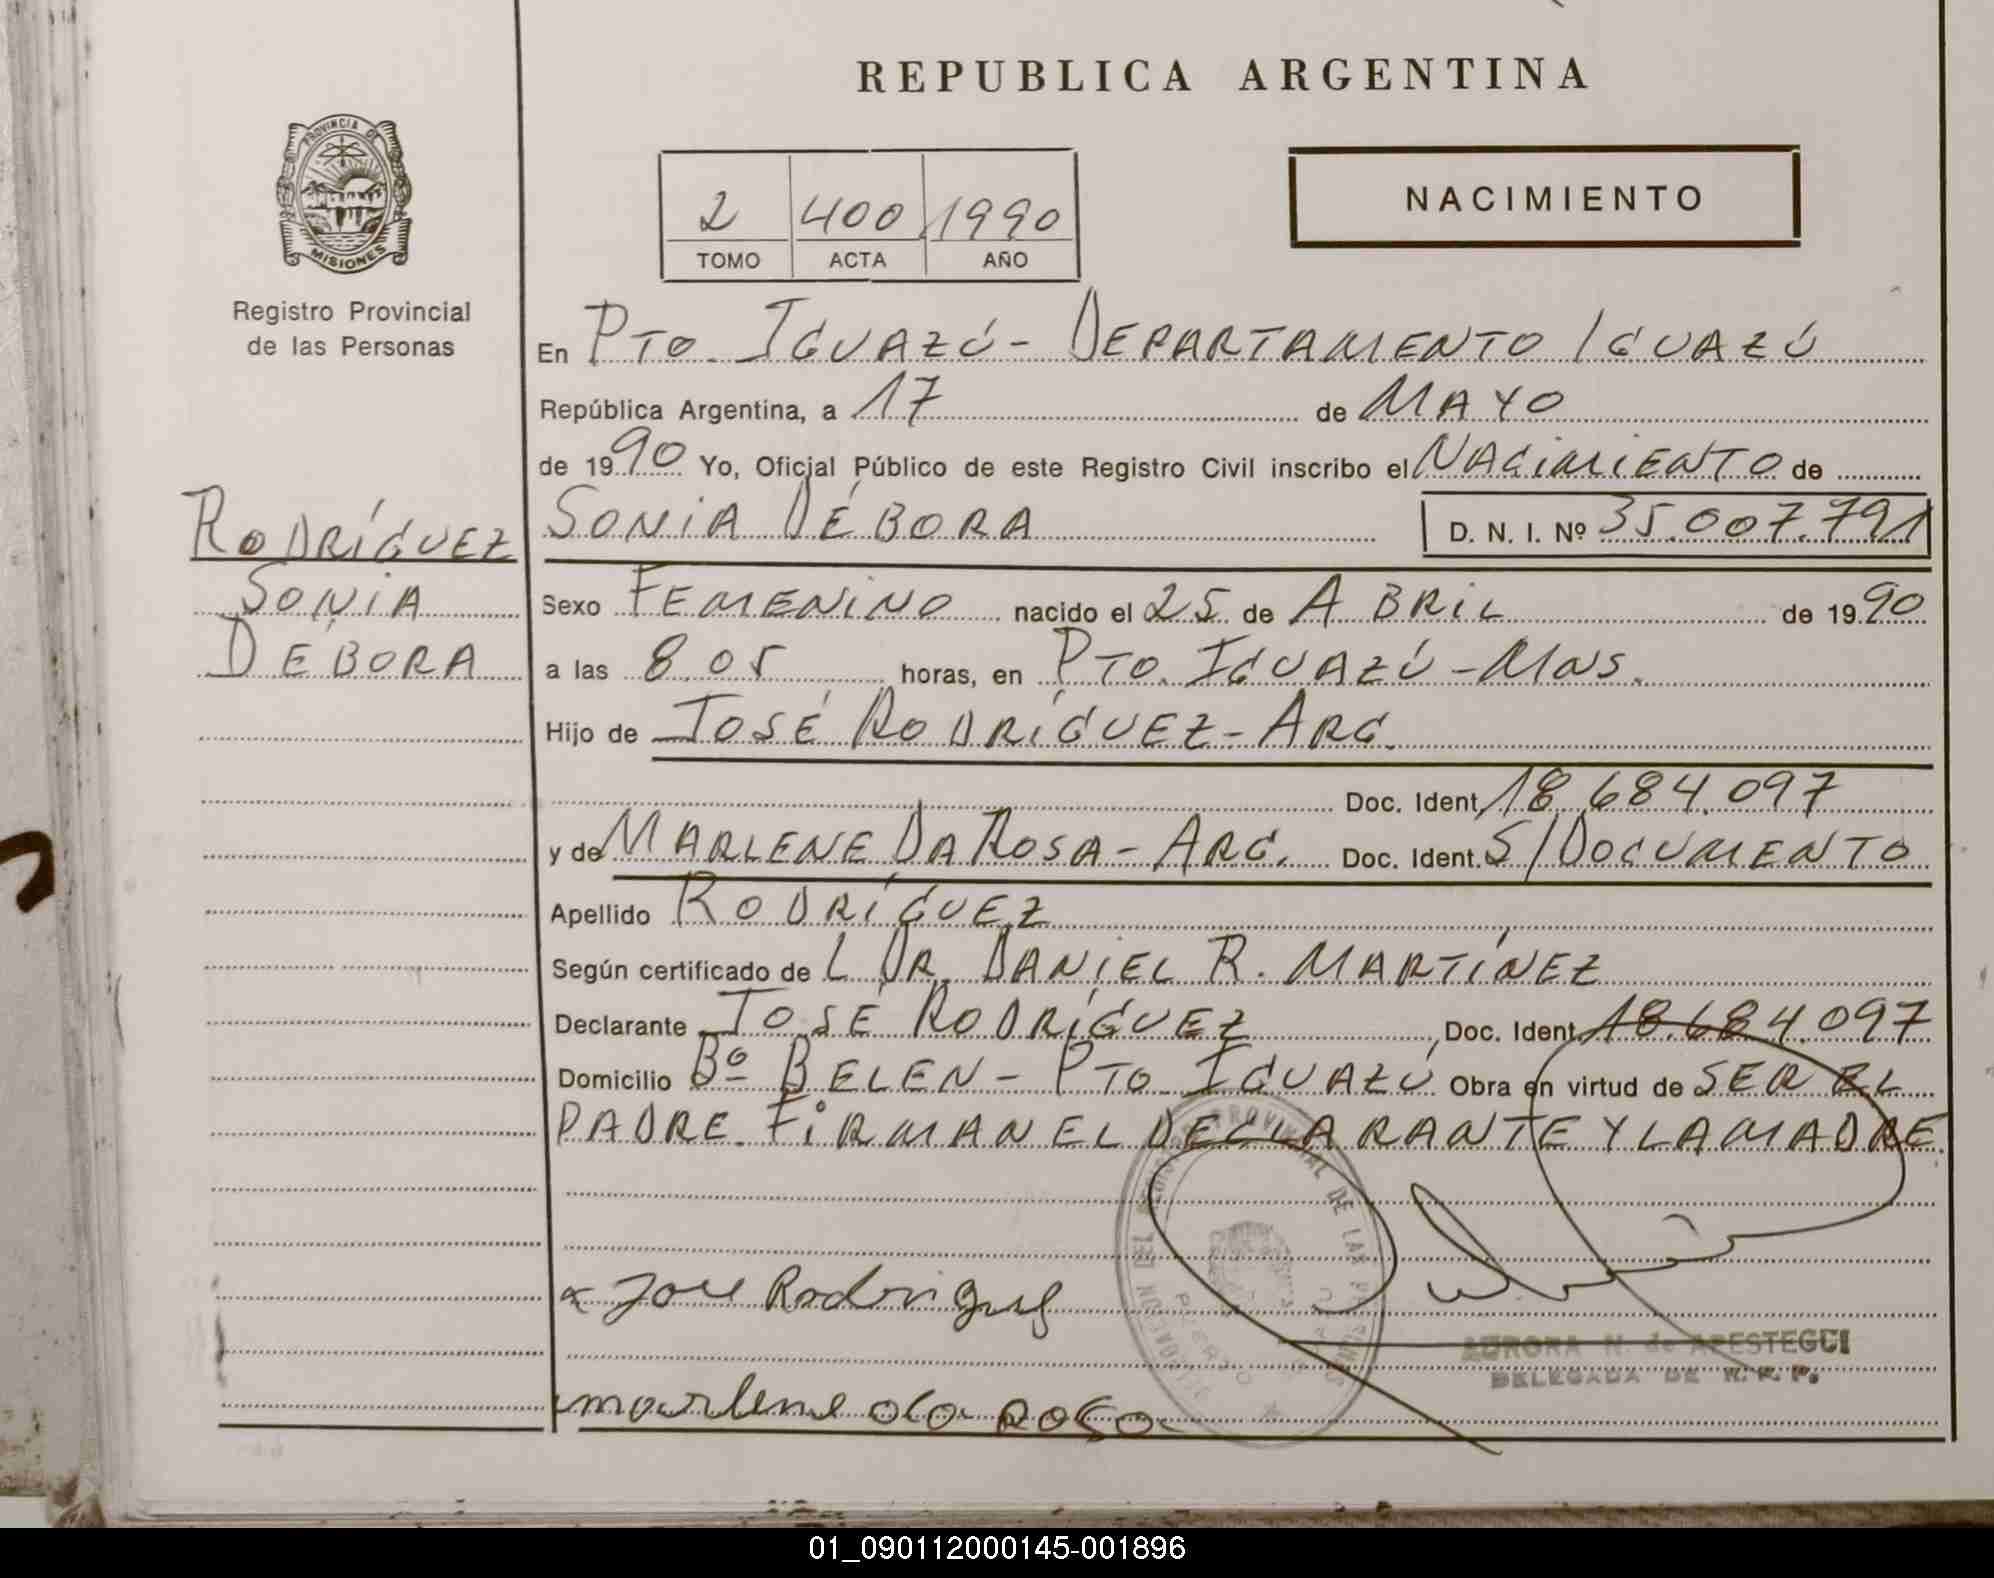 REPUBLICA ARGENTINA
PROVINCIA DE
MISIONES
Registro Provincial
de las Personas
2 400 1990
TOMO ACTA AÑO
NACIMIENTO
En PTO. IGUAZÚ - DEPARTAMENTO IGUAZÚ
República Argentina, a 17 de MAYO
de 1990 Yo, Oficial Público de este Registro Civil inscribo el NACIMIENTO de
RODRÍGUEZ
SONIA
DÉBORA
SONIA DÉBORA D. N. I. Nº 35.007.791
Sexo FEMENINO nacido el 25 de ABRIL de 1990
a las 8,05 horas, en PTO. IGUAZÚ - MNS.
Hijo de JOSÉ RODRÍGUEZ - ARG.
Doc. Ident. 18.684.097
y de MARLENE DA ROSA - ARG. Doc. Ident. S/DOCUMENTO
Apellido RODRÍGUEZ
Según certificado de L DR. DANIEL R. MARTÍNEZ
Declarante JOSÉ RODRÍGUEZ, Doc. Ident. 18.684.097
Domicilio Bº BELEN - PTO IGUAZÚ Obra en virtud de SER EL
PADRE. FIRMAN EL DECLARANTE Y LA MADRE.
Jose Rodriguez
marlene da Rosa
AURORA N. de APESTEGUI
DELEGADA DE R. P. P.
01_090112000145-001896